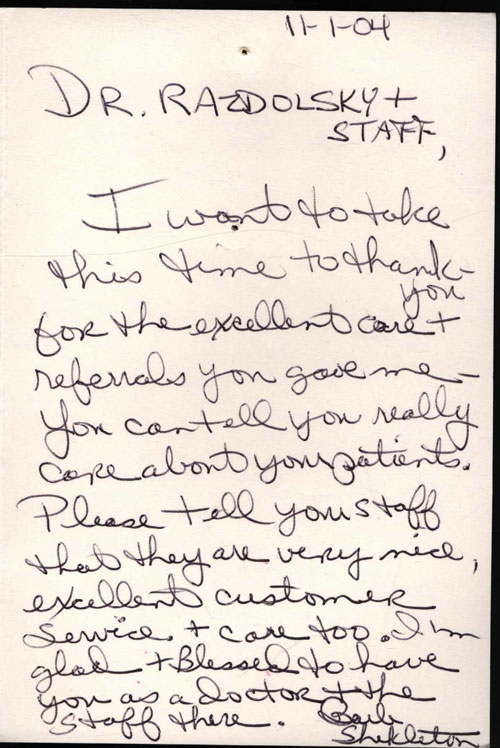 11-1-04
DR. RAZDOLSKY +
STAFF,
I want to take
this time to thank-
you
for the excellent care +
referrals you gave me -
You can tell you really
care about your patients.
Please tell your staff
that they are very nice,
excellent customer
service + care too. I'm
glad + Blessed to have
you as a doctor + the
staff there. Barb
Shekleton